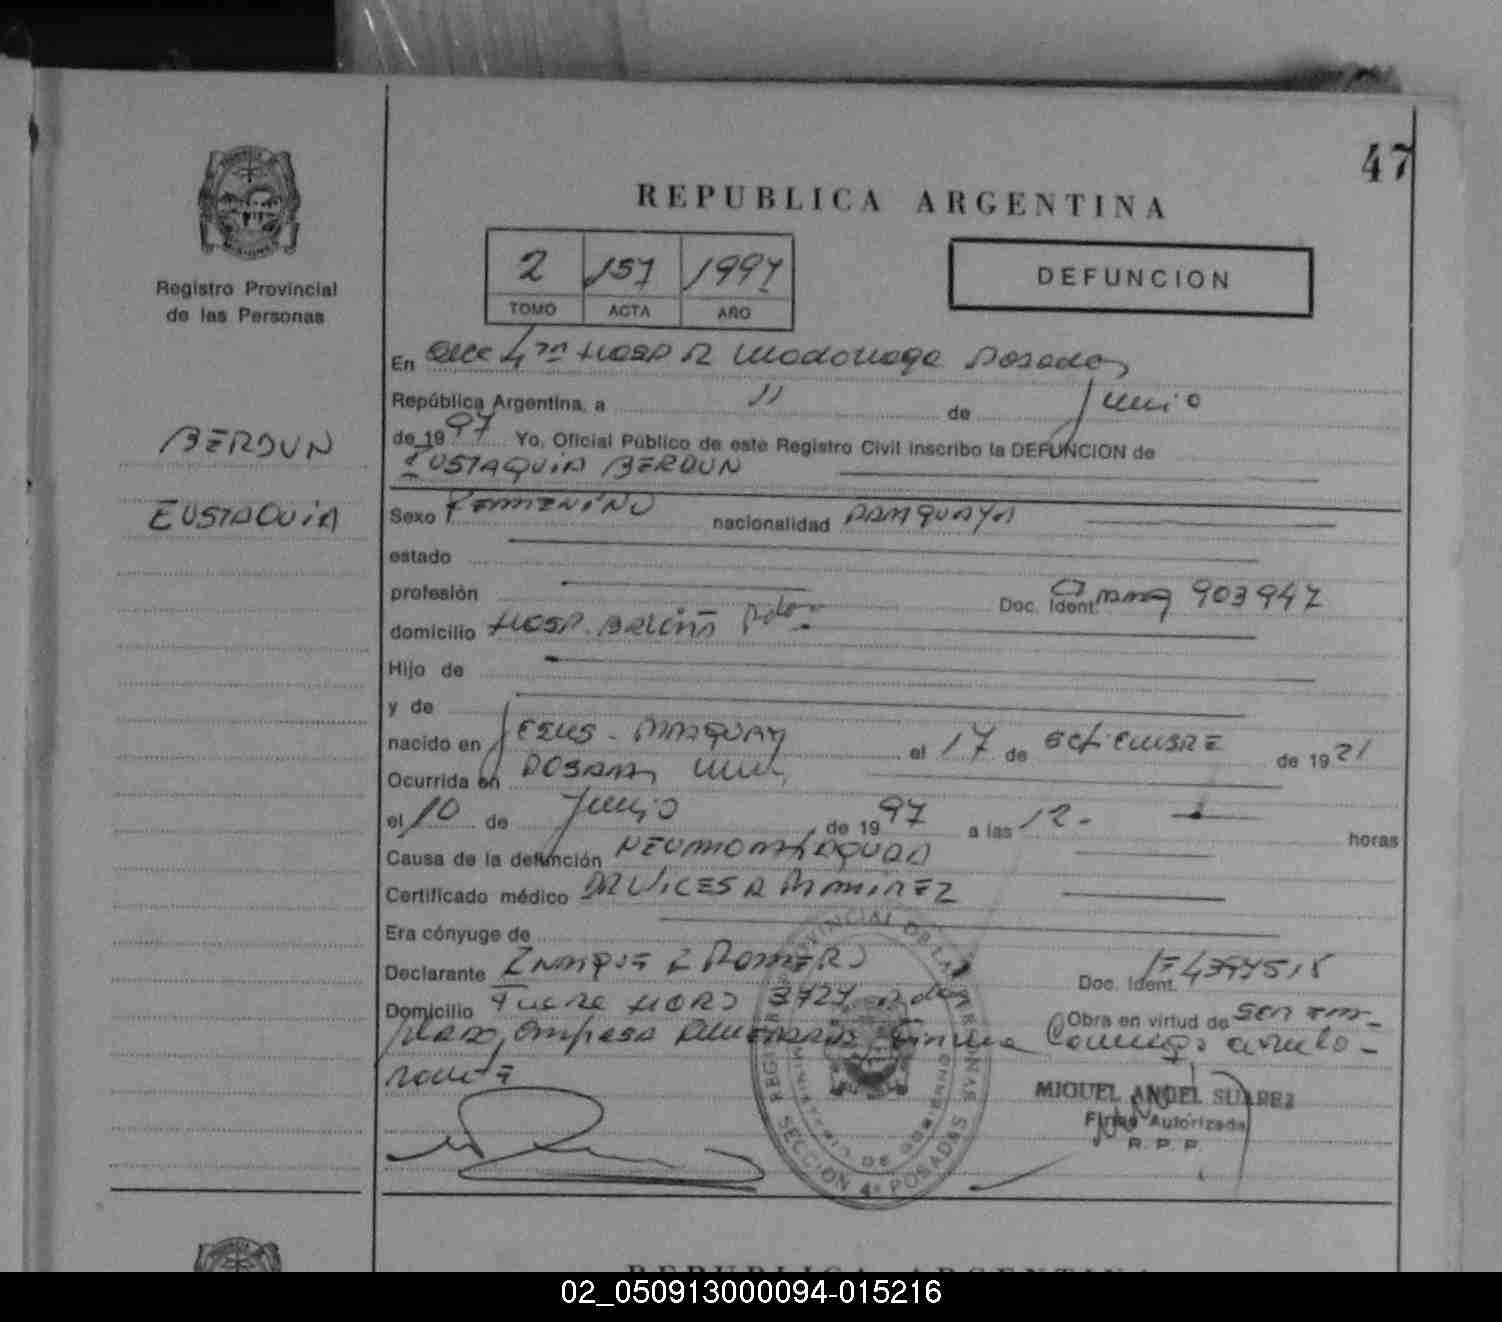 47
REPUBLICA ARGENTINA
2 157 1997
TOMO ACTA AÑO
DEFUNCION
Registro Provincial
de las Personas
BERDUN
EUSTAQUIA
En 4ta Hosp R Madariaga Posadas
República Argentina, a 11 de Junio
de 1997 Yo, Oficial Público de este Registro Civil inscribo la DEFUNCION de
EUSTAQUIA BERDUN
Sexo FEMENINO nacionalidad PARAGUAYA
estado
profesión Doc. Ident. 903947
domicilio HOSP.
Hijo de
y de
nacido en JESUS - PARAGUAY el 17 de SETIEMBRE de 1921
Ocurrida en POSADAS
el 10 de Junio de 1997 a las 12 - horas
Causa de la defunción NEUMONIA AGUDA
Certificado médico RAMIREZ
Era cónyuge de
Declarante ENRIQUE ROMERO Doc. Ident.
Domicilio Obra en virtud de SER EM-
PLEADO EMPRESA
MIGUEL ANGEL SUAREZ
Firma Autorizada
R. P. P.
REGISTRO PROVINCIAL DE LAS PERSONAS
MINISTERIO DE GOBIERNO
SECCION 4ª POSADAS
REPUBLICA ARGENTINA
02_050913000094-015216